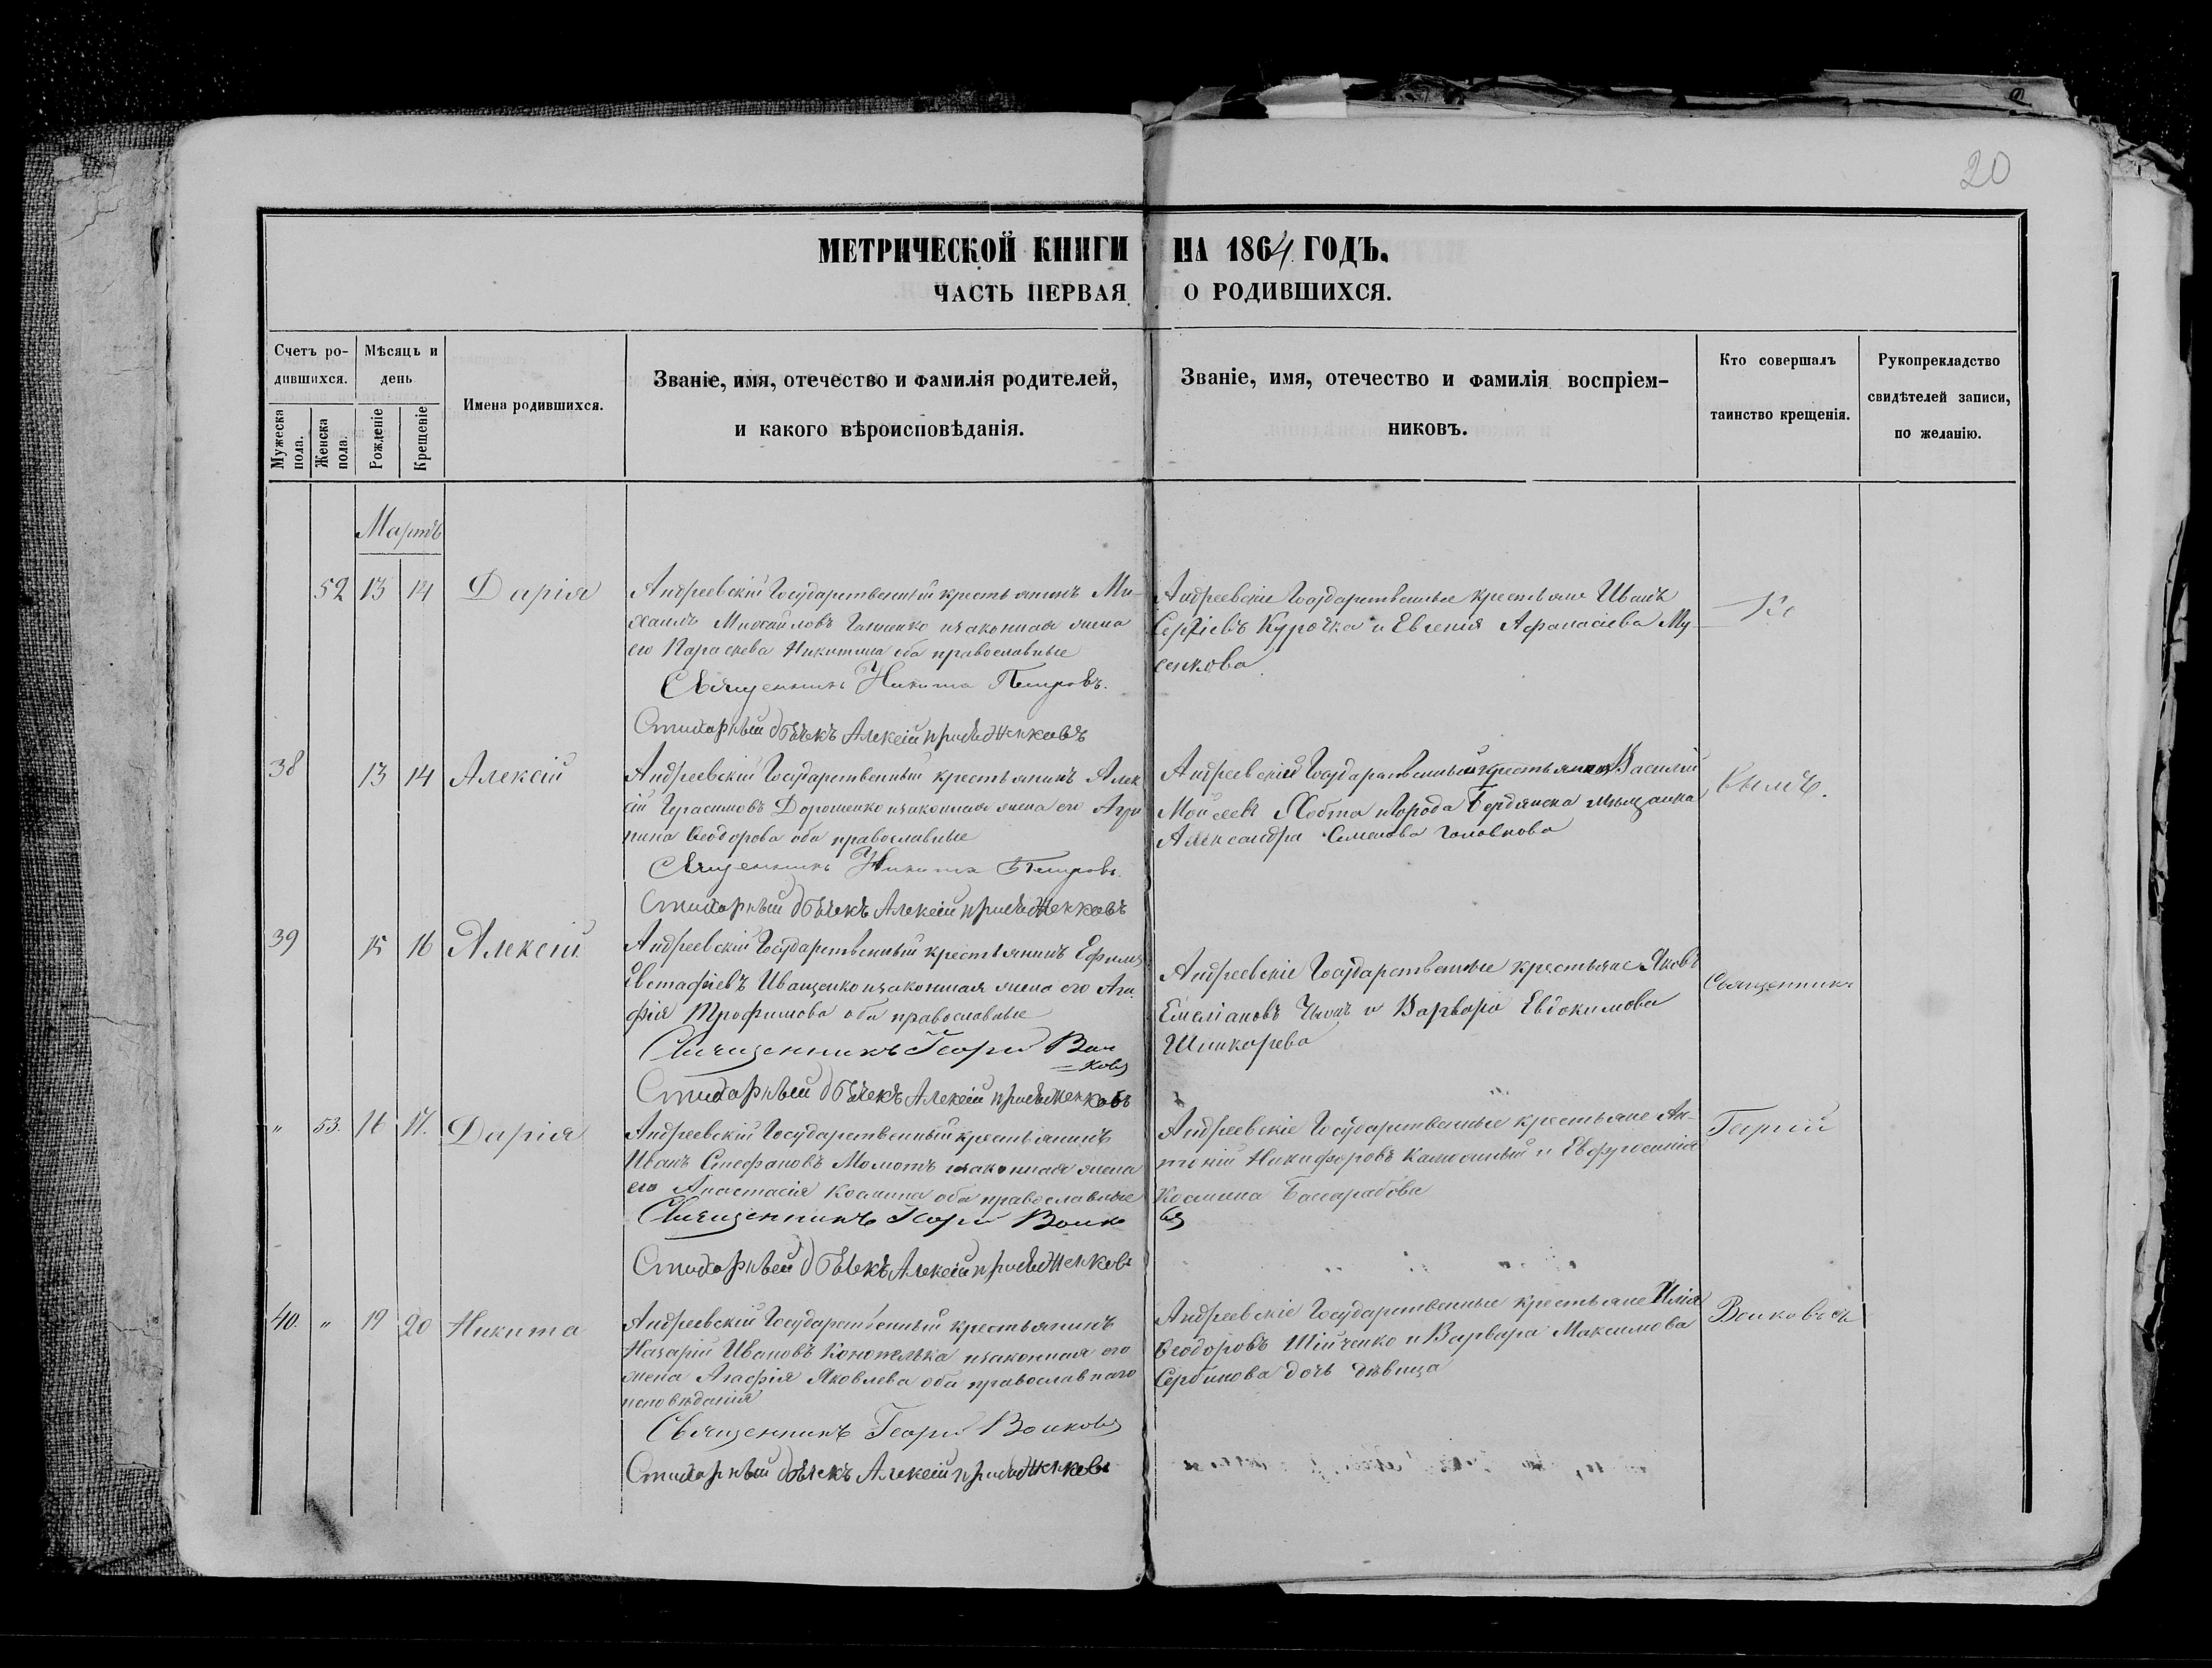 20
МЕТРИЧЕСКОЙ КНИГИ НА 1864 ГОДЪ.
ЧАСТЬ ПЕРВАЯ О РОДИВШИХСЯ.
Счетъ ро-
дившихся.
Мужеска пола.
Женска пола.
Мѣсяцъ и
день
Рожденіе
Крещеніе
Имена родившихся.
Званіе, имя, отечество и фамилія родителей,
и какого вѣроисповѣданія.
Званіе, имя, отечество и фамилія воспріем-
никовъ.
Кто совершалъ
таинство крещенія.
Рукоприкладство
свидѣтелей записи,
по желанію.
Мартъ
52 13 14 Дарія
Андреевскій Государственный крестьянинъ Ми-
хаилъ Михайловъ изаконная жена
его Параскева Никитина оба православные
Священникъ Никита Петровъ.
Стихарный дьячекъ Алексій
Андреевскіе Государственные крестьяне Иванъ
Сергіевъ Курочка и Евгенія Афанасіева Му
сенкова
38 13 14 Алексій
Андреевскій Государственный крестьянинъ Алек
сій Герасимовъ Дорошенко изаконная жена его Агри
пина Ѳеодорова оба православные
Священникъ Никита Петровъ.
Стихарный дьячекъ Алексій
Андреевскій Государственный крестьянинъ Василій
Мойсеевъ Хобта игорода Бердянска мѣщанка
Александра Семенова Головкова
39 15 16 Алексій
Андреевскій Государственный крестьянинъ Ефимъ
Евстафіевъ Иващенко изаконная жена его Ага
фія Трофимова оба православные
Священникъ Георгій Вои
ковъ
Стихарный дьячекъ Алексій
Андреевскіе Государственные крестьяне Яковъ
Емеліановъ и Варвара Евдокимова
Шинкарева
Священникъ
" 53. 16 17. Дарія
Андреевскій Государственный крестьянинъ
Иванъ Стефановъ Момотъ изаконная жена
его Анастасія Космина оба православные
Священникъ Георгій Воико
въ
Стихарный дьячекъ Алексій
Андреевскіе Государственные крестьяне Ан-
тоній Никифоровъ и Евфросинія
Космина Басарабова
Георгій
40. " 19 20 Никита
Андреевскій Государственный крестьянинъ
Назарій Ивановъ Конопелька изаконная его
жена Агафія Яковлева оба православнаго
исповѣданія
Священникъ Георгій Воиковъ
Стихарный дьячекъ Алексій
Андреевскіе Государственные крестьяне Илія
Ѳеодоровъ и Варвара Максимова
Сербинова дочь дѣвица